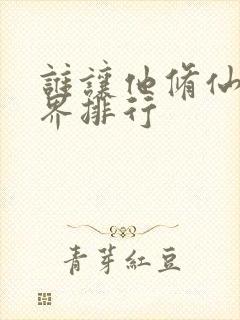 誰讓他脩仙
界排行
青芽紅豆